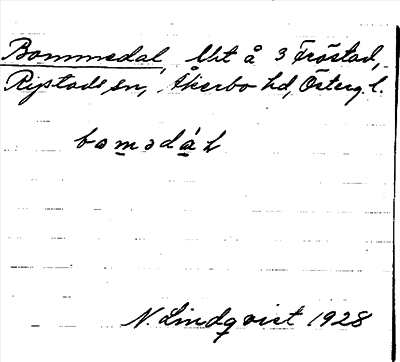 Bommedal, lht å 3 Fröstad,
Ripstads sn, Åkerbo hd, Österg. l.
bomədál
N. Lindqvist 1928